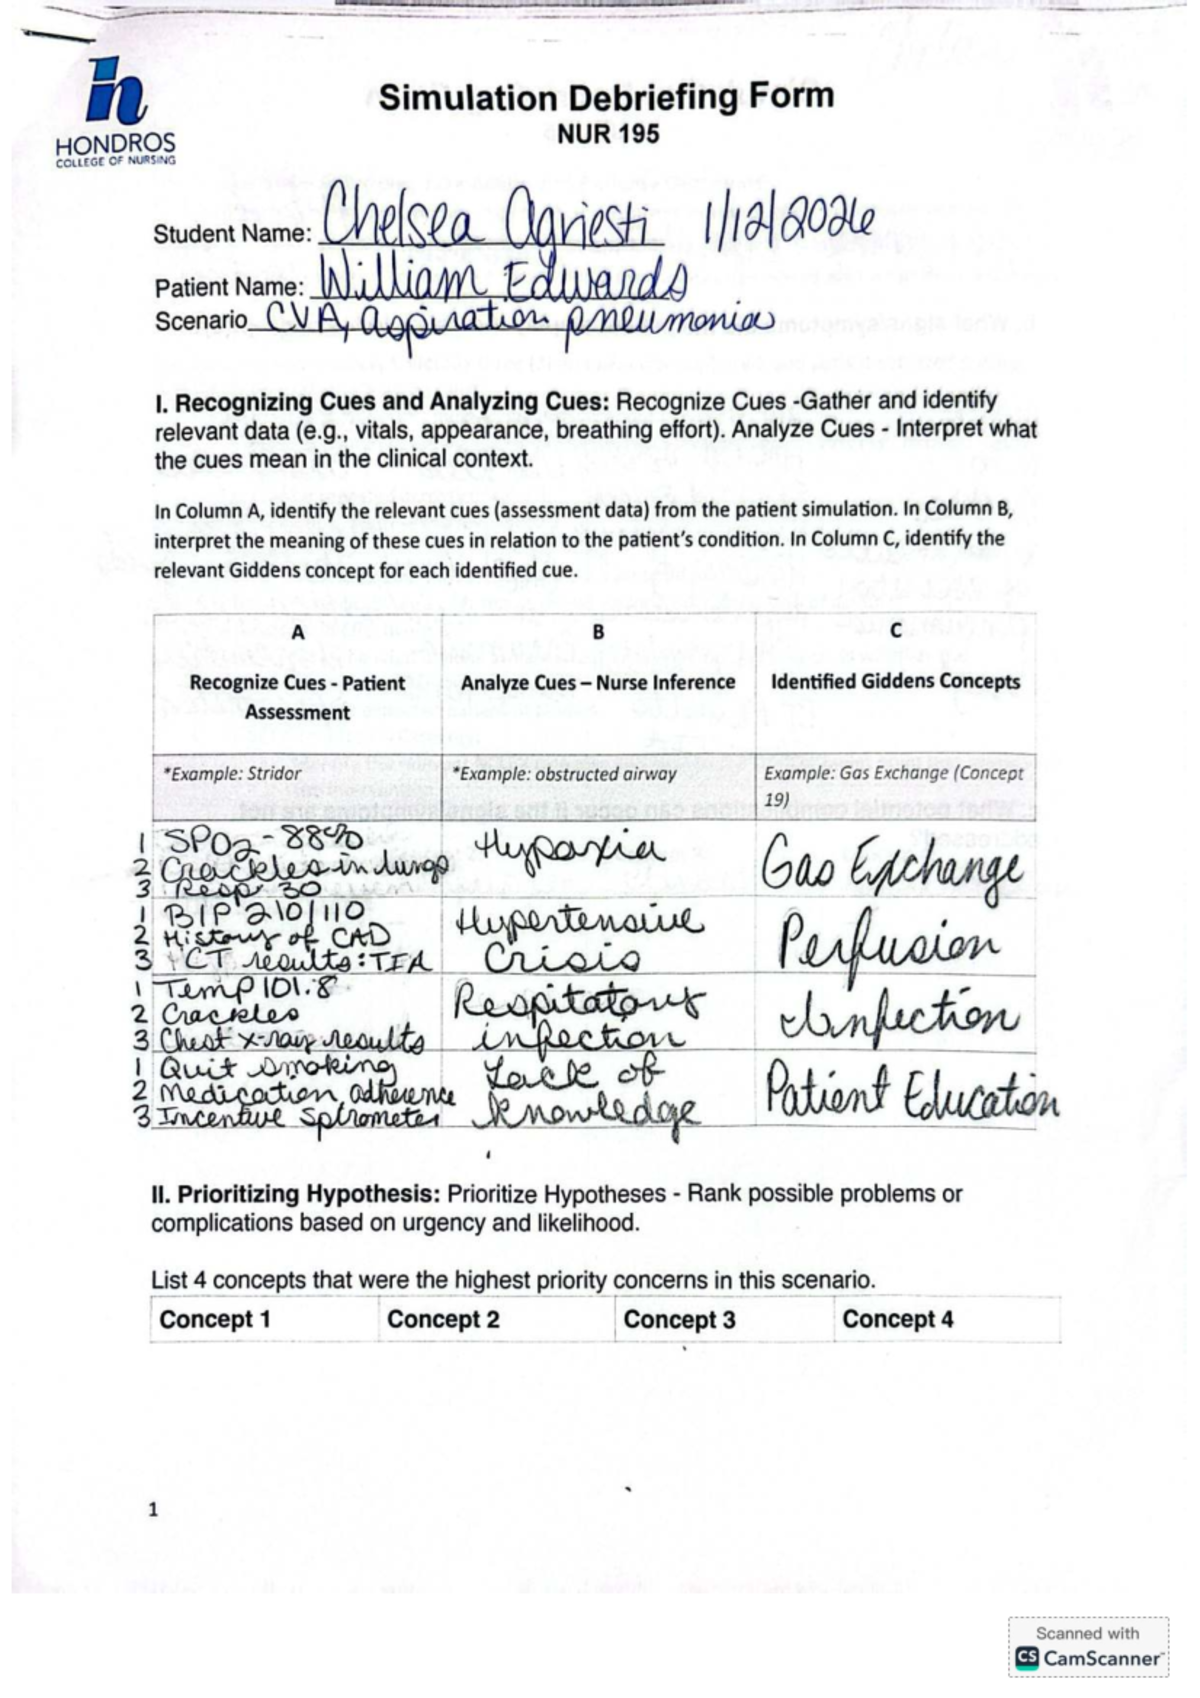 HONDROS
COLLEGE OF NURSING
Simulation Debriefing Form
NUR 195
Student Name: Chelsea Agriesti 1/12/2026
Patient Name: William Edwards
Scenario CVA, aspiration pneumonia
I. Recognizing Cues and Analyzing Cues: Recognize Cues -Gather and identify
relevant data (e.g., vitals, appearance, breathing effort). Analyze Cues - Interpret what
the cues mean in the clinical context.
In Column A, identify the relevant cues (assessment data) from the patient simulation. In Column B,
interpret the meaning of these cues in relation to the patient's condition. In Column C, identify the
relevant Giddens concept for each identified cue.
A B C
Recognize Cues - Patient Analyze Cues – Nurse Inference Identified Giddens Concepts
Assessment
*Example: Stridor *Example: obstructed airway Example: Gas Exchange (Concept
19)
1 SPO2 - 88% Hypoxia Gas Exchange
2 Crackles in lungs
3 Resp: 30
1 B/P 210/110 Hypertensive Perfusion
2 History of CAD Crisis
3 CT results: TIA
1 Temp 101.8 Respitatory Infection
2 Crackles infection
3 Chest x-ray results
1 Quit smoking Lack of Patient Education
2 Medication adherence knowledge
3 Incentive Spirometer
II. Prioritizing Hypothesis: Prioritize Hypotheses - Rank possible problems or
complications based on urgency and likelihood.
List 4 concepts that were the highest priority concerns in this scenario.
Concept 1 Concept 2 Concept 3 Concept 4
1
Scanned with
CS CamScanner